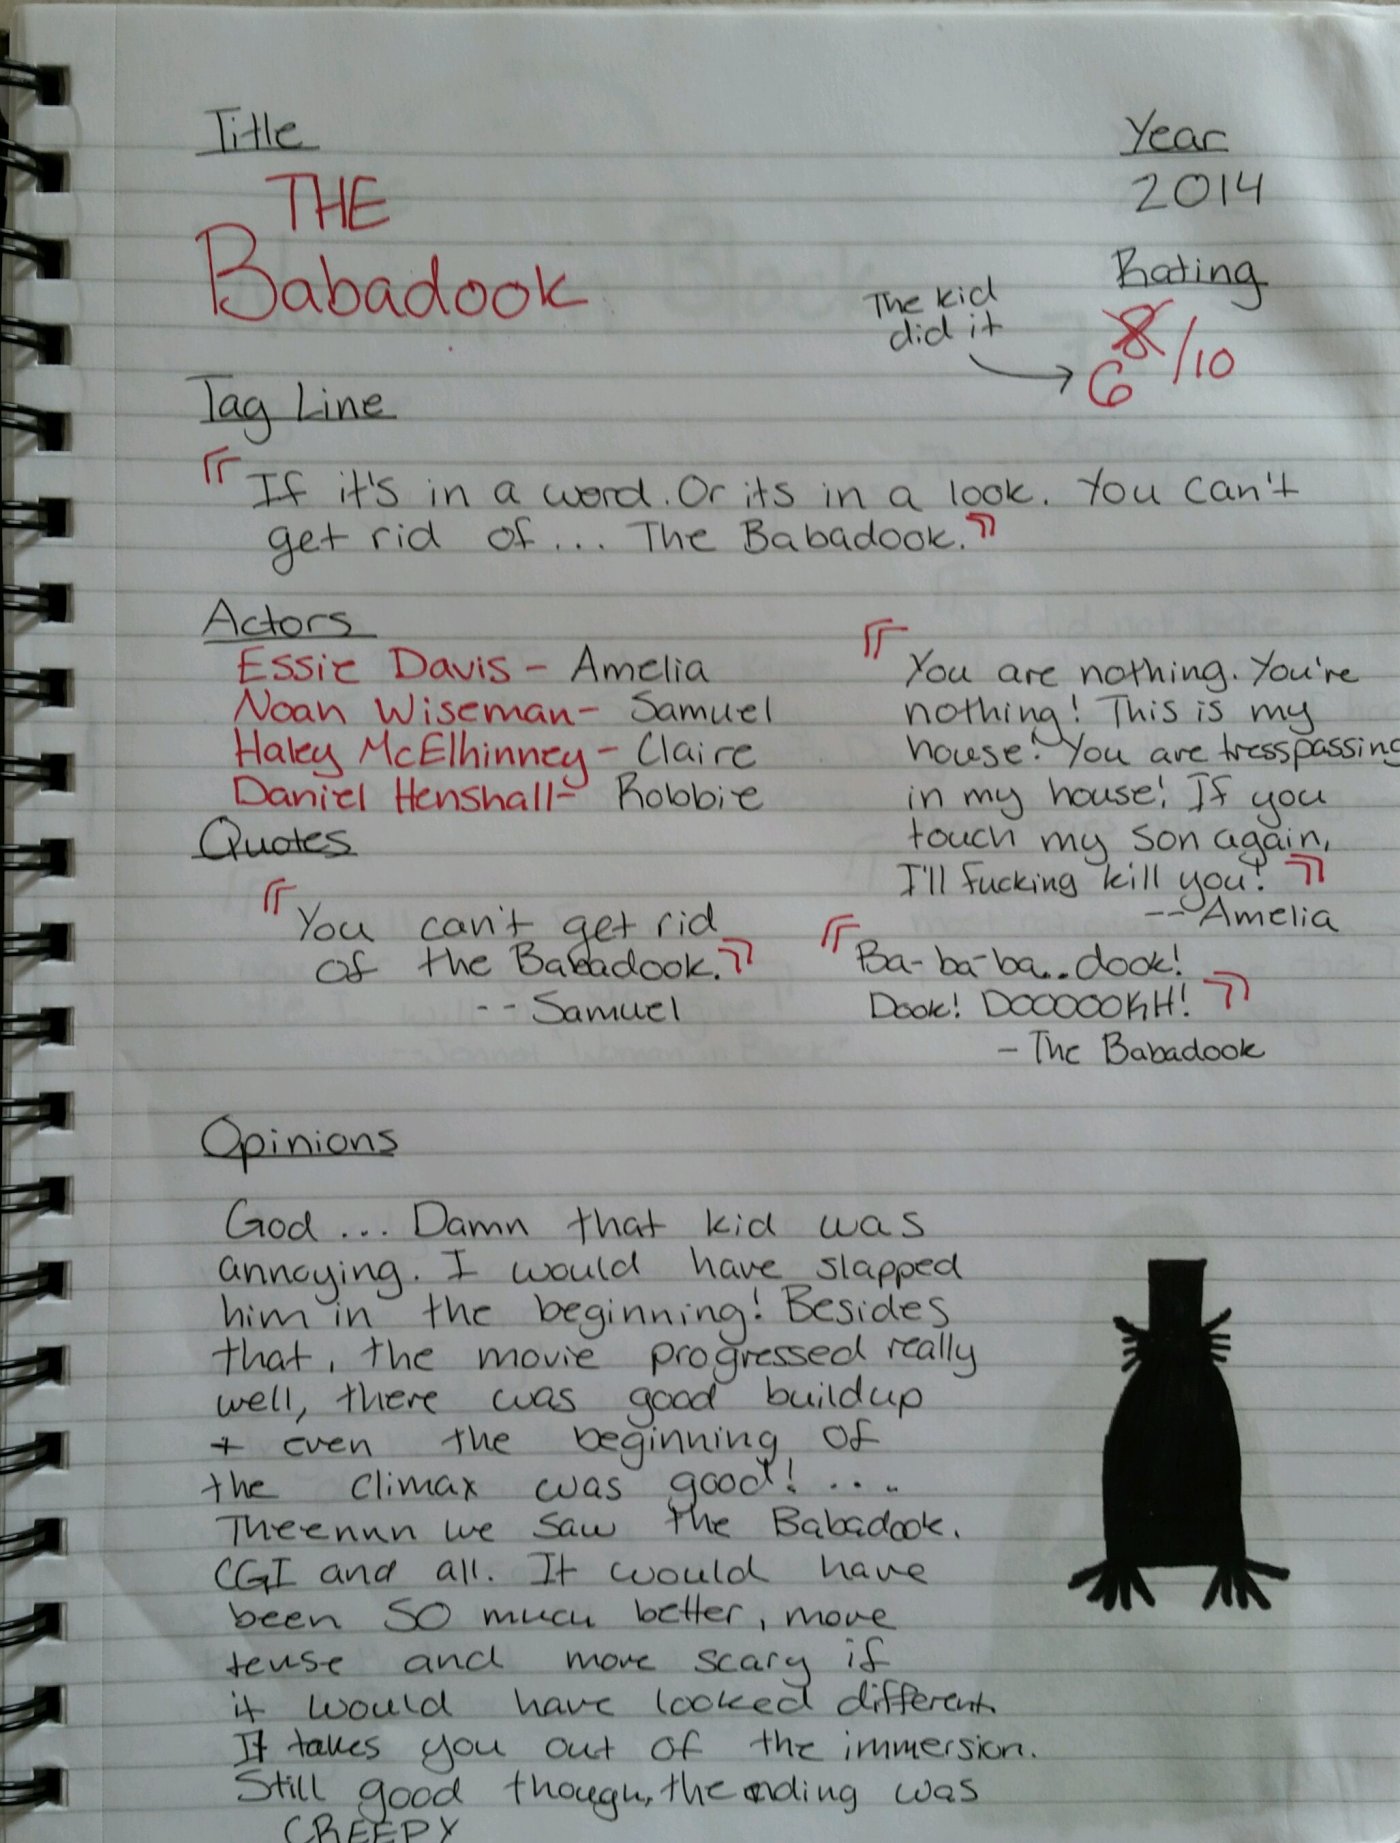 Title
THE
Babadook
Year
2014
Rating
The kid
did it
8/10
6
Tag Line
"If it's in a word. Or its in a look. You can't
get rid of... The Babadook."
Actors
Essie Davis - Amelia
Noah Wiseman - Samuel
Haley McElhinney - Claire
Daniel Henshall - Robbie
Quotes
"You can't get rid
of the Babadook."
-- Samuel
"You are nothing. You're
nothing! This is my
house! You are tresspassing
in my house! If you
touch my son again,
I'll fucking kill you!"
-- Amelia
"Ba-ba-ba..dook!
Dook! DOOOOOKH!"
- The Babadook
Opinions
God... Damn that kid was
annoying. I would have slapped
him in the beginning! Besides
that, the movie progressed really
well, there was good buildup
+ even the beginning of
the climax was good!....
Theennn we saw the Babadook.
CGI and all. It would have
been SO much better, more
tense and more scary if
it would have looked different.
It takes you out of the immersion.
Still good though, the ending was
CREEPY